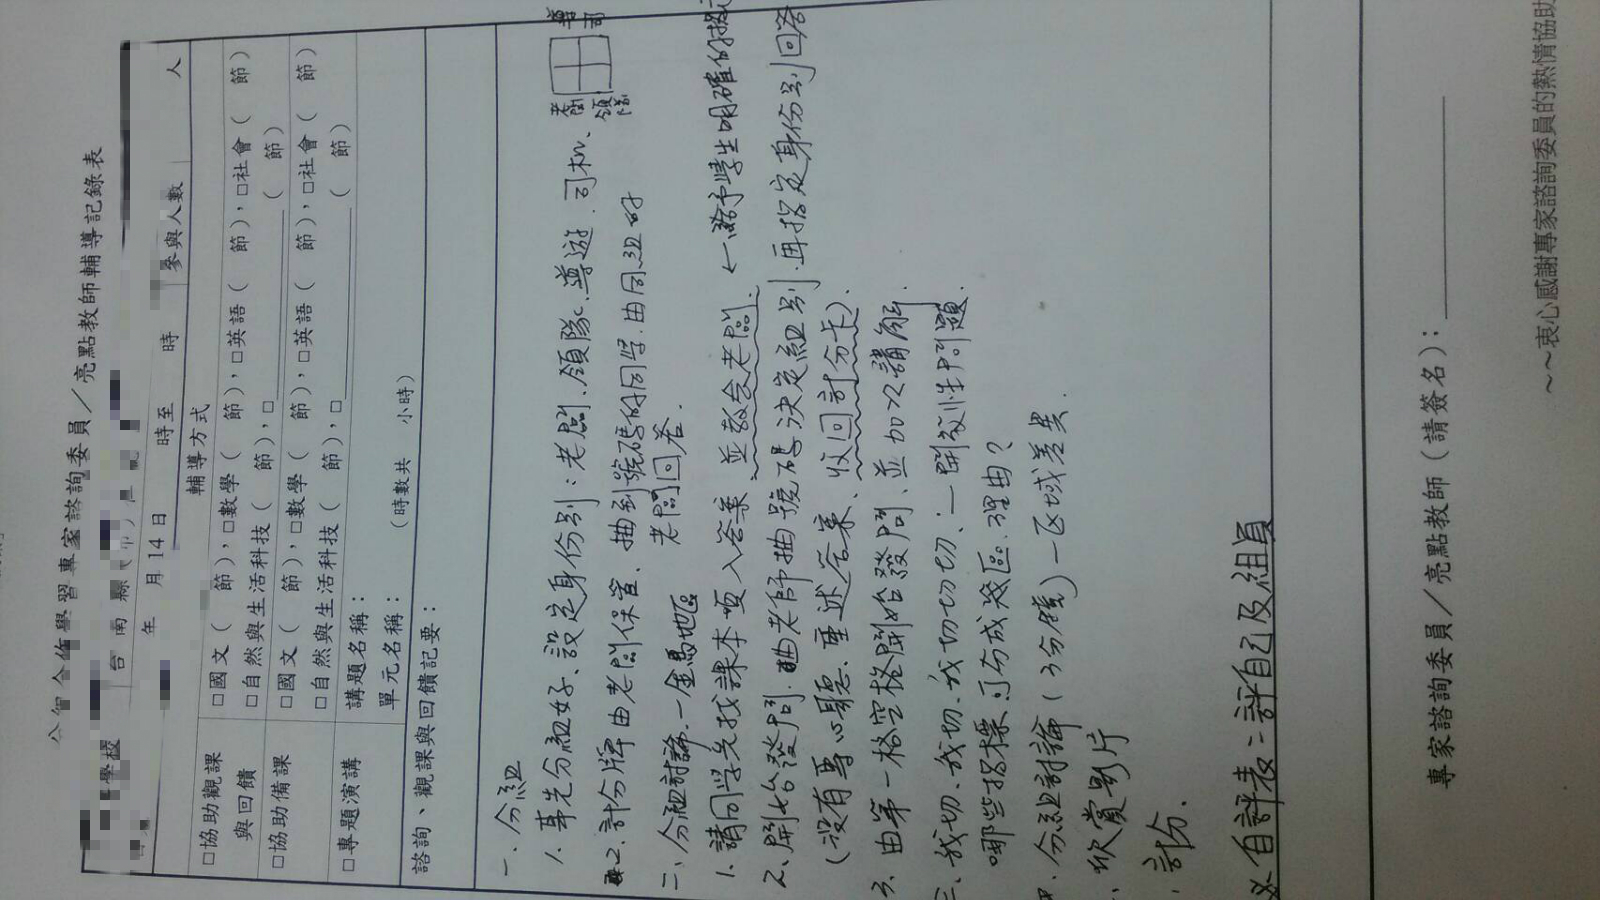 合作學習專家諮詢委員／亮點教師輔導記錄表
學校
台南縣(市)
年 月14日 時至 時
參與人數 人
輔導方式
□協助觀課與回饋
□國文（ 節），□數學（ 節），□英語（ 節），□社會（ 節）
□自然與生活科技（ 節），□＿＿＿＿（ 節）
□協助備課
□國文（ 節），□數學（ 節），□英語（ 節），□社會（ 節）
□自然與生活科技（ 節），□＿＿＿＿（ 節）
□專題演講
講題名稱：
單元名稱： （時數共 小時）
諮詢、觀課與回饋記要：
一、分組
1. 事先分組好、設定身份別：老闆、領隊、導遊、司机、
導 司
老闆 領隊
2. 計分牌由老闆保管、抽到號碼的同学、由同組好
老闆回答.
二、分組討論.—金馬地區
1. 請同学先找課本填入答案 並教会老闆. ←給予學生明確的
2、開始發問. 由老師抽號码決定組別.再指定身份別回答
(没有專心聽.重述答案、收回計分卡).
3. 由第一格空格開始發問、並加以講解.
三、我切、我切、我切切切、—開放性問題.
哪些指標.可分成幾區.理由?
四、分組討論 (3分鐘)—区域差異.
、欣賞影片
、計分.
自評表：評自己及組員
專家諮詢委員／亮點教師（請簽名）：
～～衷心感謝專家諮詢委員的熱情協助